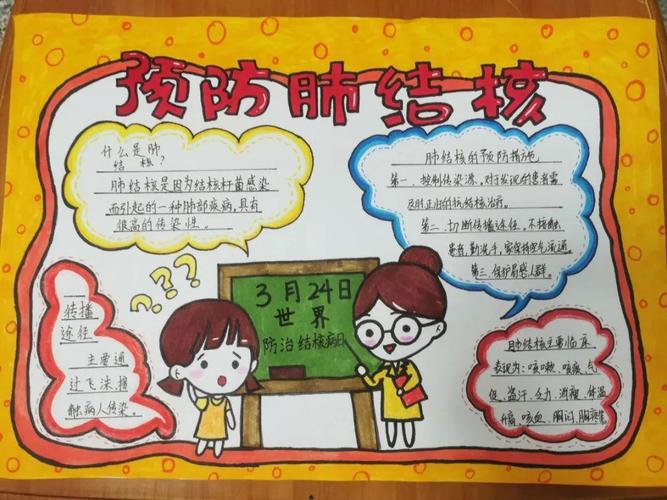 预防肺结核
什么是肺
结核?
肺结核是因为结核杆菌感染
而引起的一种肺部疾病,具有
很高的传染性。
肺结核的预防措施
第一、控制传染源,对于发现的患者需
及时正归的抗结核治疗。
第二、切断传播途径、不接触
患者,勤洗手,室保持空气流通。
第三、保护易感人群。
???
3月24日
世界
防治结核病日
传播
途径
主要通
过飞沫、接
触病人传染。
肺结核主要临床
表现为:咳嗽、咳痰、气
促、盗汗、乏力、消瘦、体温
升高、咳血、胸闷、胸痛等